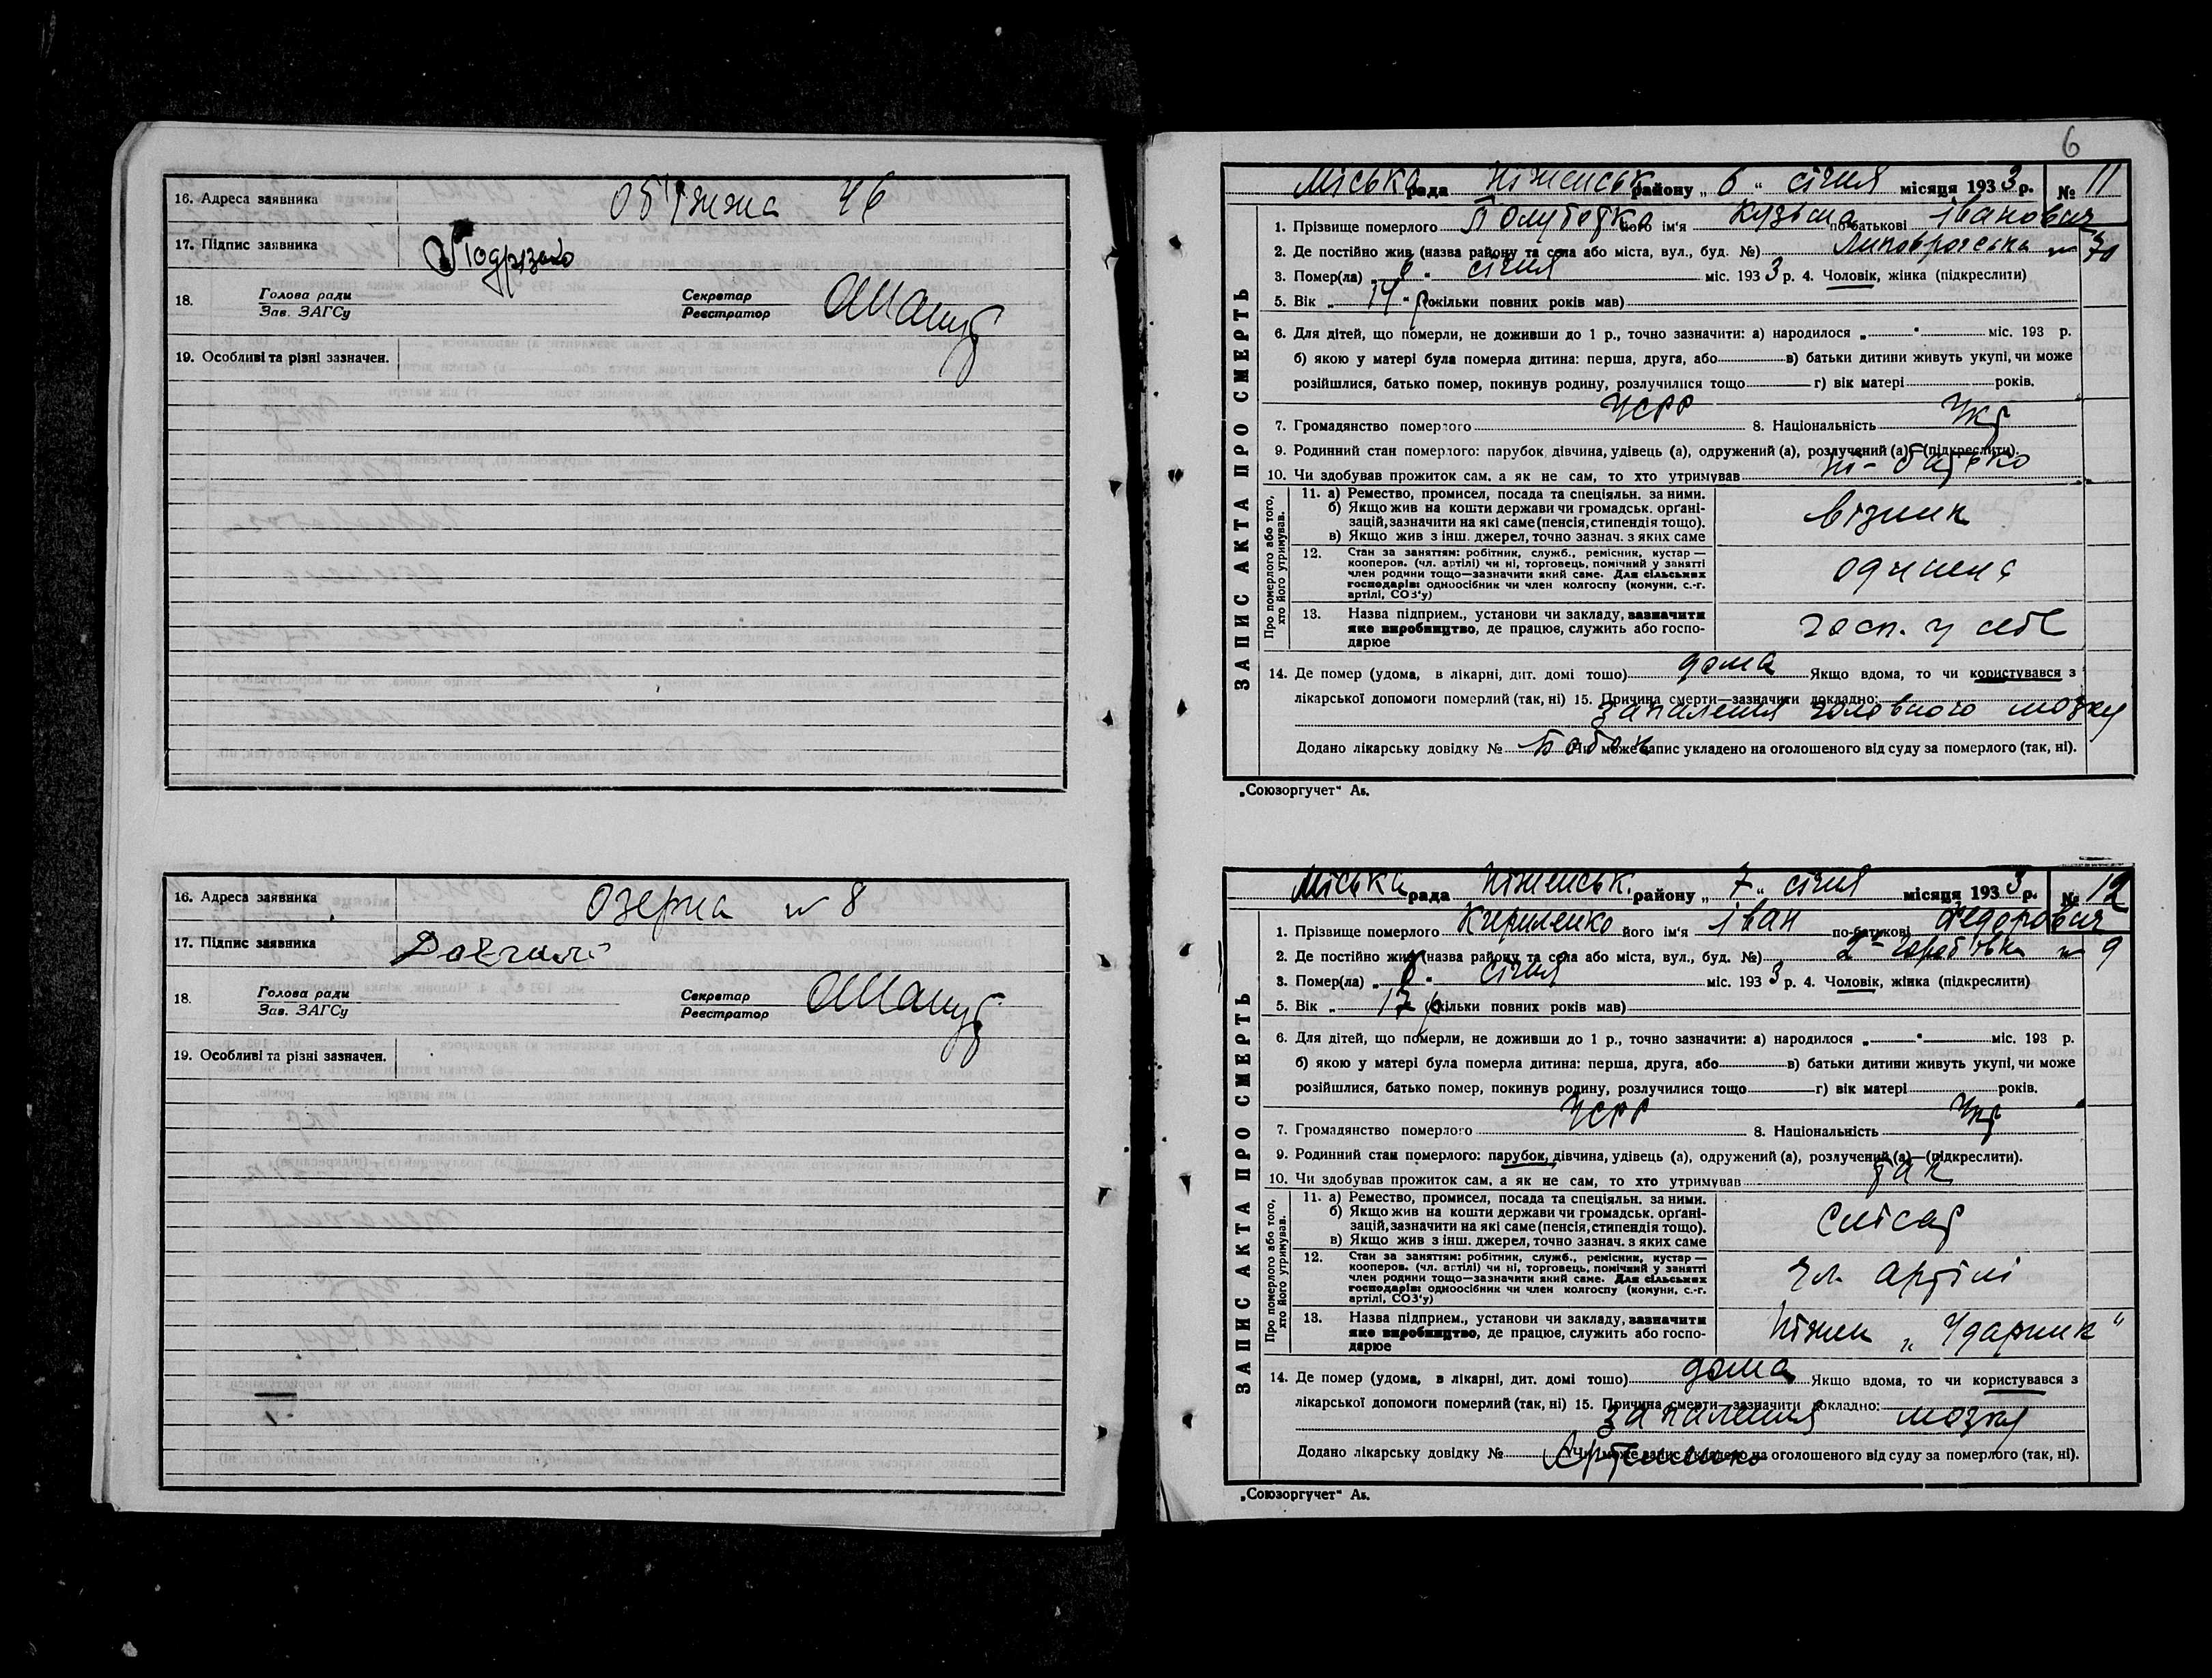 16. Адреса заявника Об'їжжа 46
17. Підпис заявника Подрізенко
18. Голова ради
Зав. ЗАГСу
Секретар
Реєстратор
19. Особливі та різні зазначен.
16. Адреса заявника Озерна № 8
17. Підпис заявника Довгаль
18. Голова ради
Зав. ЗАГСу
Секретар
Реєстратор
19. Особливі та різні зазначен.
6
ЗАПИС АКТА ПРО СМЕРТЬ
Міська рада Ніженськ району „ 6 “ січня місяця 1933 р. № 11
1. Прізвище померлого Полуботко його ім'я Кузьма по-батькові Іванович
2. Де постійно жив (назва району та села або міста, вул., буд. №) № 70
3. Помер(ла) „ 6 “ січня міс. 1933 р. 4. Чоловік, жінка (підкреслити)
5. Вік „ 14 “ р (скільки повних років мав)
6. Для дітей, що померли, не доживши до 1 р., точно зазначити: а) народилося „ “ міс. 193 р.
б) якою у матері була померла дитина: перша, друга, або в) батьки дитини живуть укупі, чи може
розійшлися, батько помер, покинув родину, розлучилися тощо г) вік матері років.
7. Громадянство померлого УСРР 8. Національність Укр
9. Родинний стан померлого: парубок, дівчина, удівець (а), одружений (а), розлучений (а)—(підкреслити).
10. Чи здобував прожиток сам, а як не сам, то хто утримував ні - батько
Про померлого або того, хто його утримував.
11. а) Ремество, промисел, посада та спеціяльн. за ними.
б) Якщо жив на кошти держави чи громадськ. орґані-
зацій, зазначити на які саме (пенсія, стипендія тощо).
в) Якщо жив з інш. джерел, точно зазнач. з яких саме
візник
12. Стан за заняттям: робітник, служб., ремісник, кустар —
кооперов. (чл. артілі) чи ні, торговець, помічний у занятті
член родини тощо—зазначити який саме. Для сільських
господарів: одноосібник чи член колгоспу (комуни, с.-г.
артілі, СОЗ'у)
13. Назва підприєм., установи чи закладу, зазначити
яке виробництво, де працює, служить або госпо-
дарює
госп. у себе
14. Де помер (удома, в лікарні, дит. домі тощо) дома Якщо вдома, то чи користувався з
лікарської допомоги померлий (так, ні) 15. Причина смерти—зазначити докладно:
запалення головного мозку
Додано лікарську довідку № Чи може запис укладено на оголошеного від суду за померлого (так, ні).
„Союзоргучет“ Аь.
ЗАПИС АКТА ПРО СМЕРТЬ
Міська рада Ніженськ. району „ 7 “ січня місяця 1933 р. № 12
1. Прізвище померлого Кириленко його ім'я Іван по-батькові Федорович
2. Де постійно жив (назва району та села або міста, вул., буд. №) № 9
3. Помер(ла) „ 6 “ січня міс. 1933 р. 4. Чоловік, жінка (підкреслити)
5. Вік „ 17 р (скільки повних років мав)
6. Для дітей, що померли, не доживши до 1 р., точно зазначити: а) народилося „ “ міс. 193 р.
б) якою у матері була померла дитина: перша, друга, або в) батьки дитини живуть укупі, чи може
розійшлися, батько помер, покинув родину, розлучилися тощо г) вік матері років.
7. Громадянство померлого УСРР 8. Національність Укр
9. Родинний стан померлого: парубок, дівчина, удівець (а), одружений (а), розлучений (а)—(підкреслити).
10. Чи здобував прожиток сам, а як не сам, то хто утримував так
Про померлого або того, хто його утримував.
11. а) Ремество, промисел, посада та спеціяльн. за ними.
б) Якщо жив на кошти держави чи громадськ. орґані-
зацій, зазначити на які саме (пенсія, стипендія тощо).
в) Якщо жив з інш. джерел, точно зазнач. з яких саме
Слюсар
12. Стан за заняттям: робітник, служб., ремісник, кустар —
кооперов. (чл. артілі) чи ні, торговець, помічний у занятті
член родини тощо—зазначити який саме. Для сільських
господарів: одноосібник чи член колгоспу (комуни, с.-г.
артілі, СОЗ'у)
чл. артілі
13. Назва підприєм., установи чи закладу, зазначити
яке виробництво, де працює, служить або госпо-
дарює
Ніжин „Ударник“
14. Де помер (удома, в лікарні, дит. домі тощо) дома Якщо вдома, то чи користувався з
лікарської допомоги померлий (так, ні) 15. Причина смерти—зазначити докладно:
запалення мозку
Додано лікарську довідку № Артеменко Чи може запис укладено на оголошеного від суду за померлого (так, ні).
„Союзоргучет“ Аь.